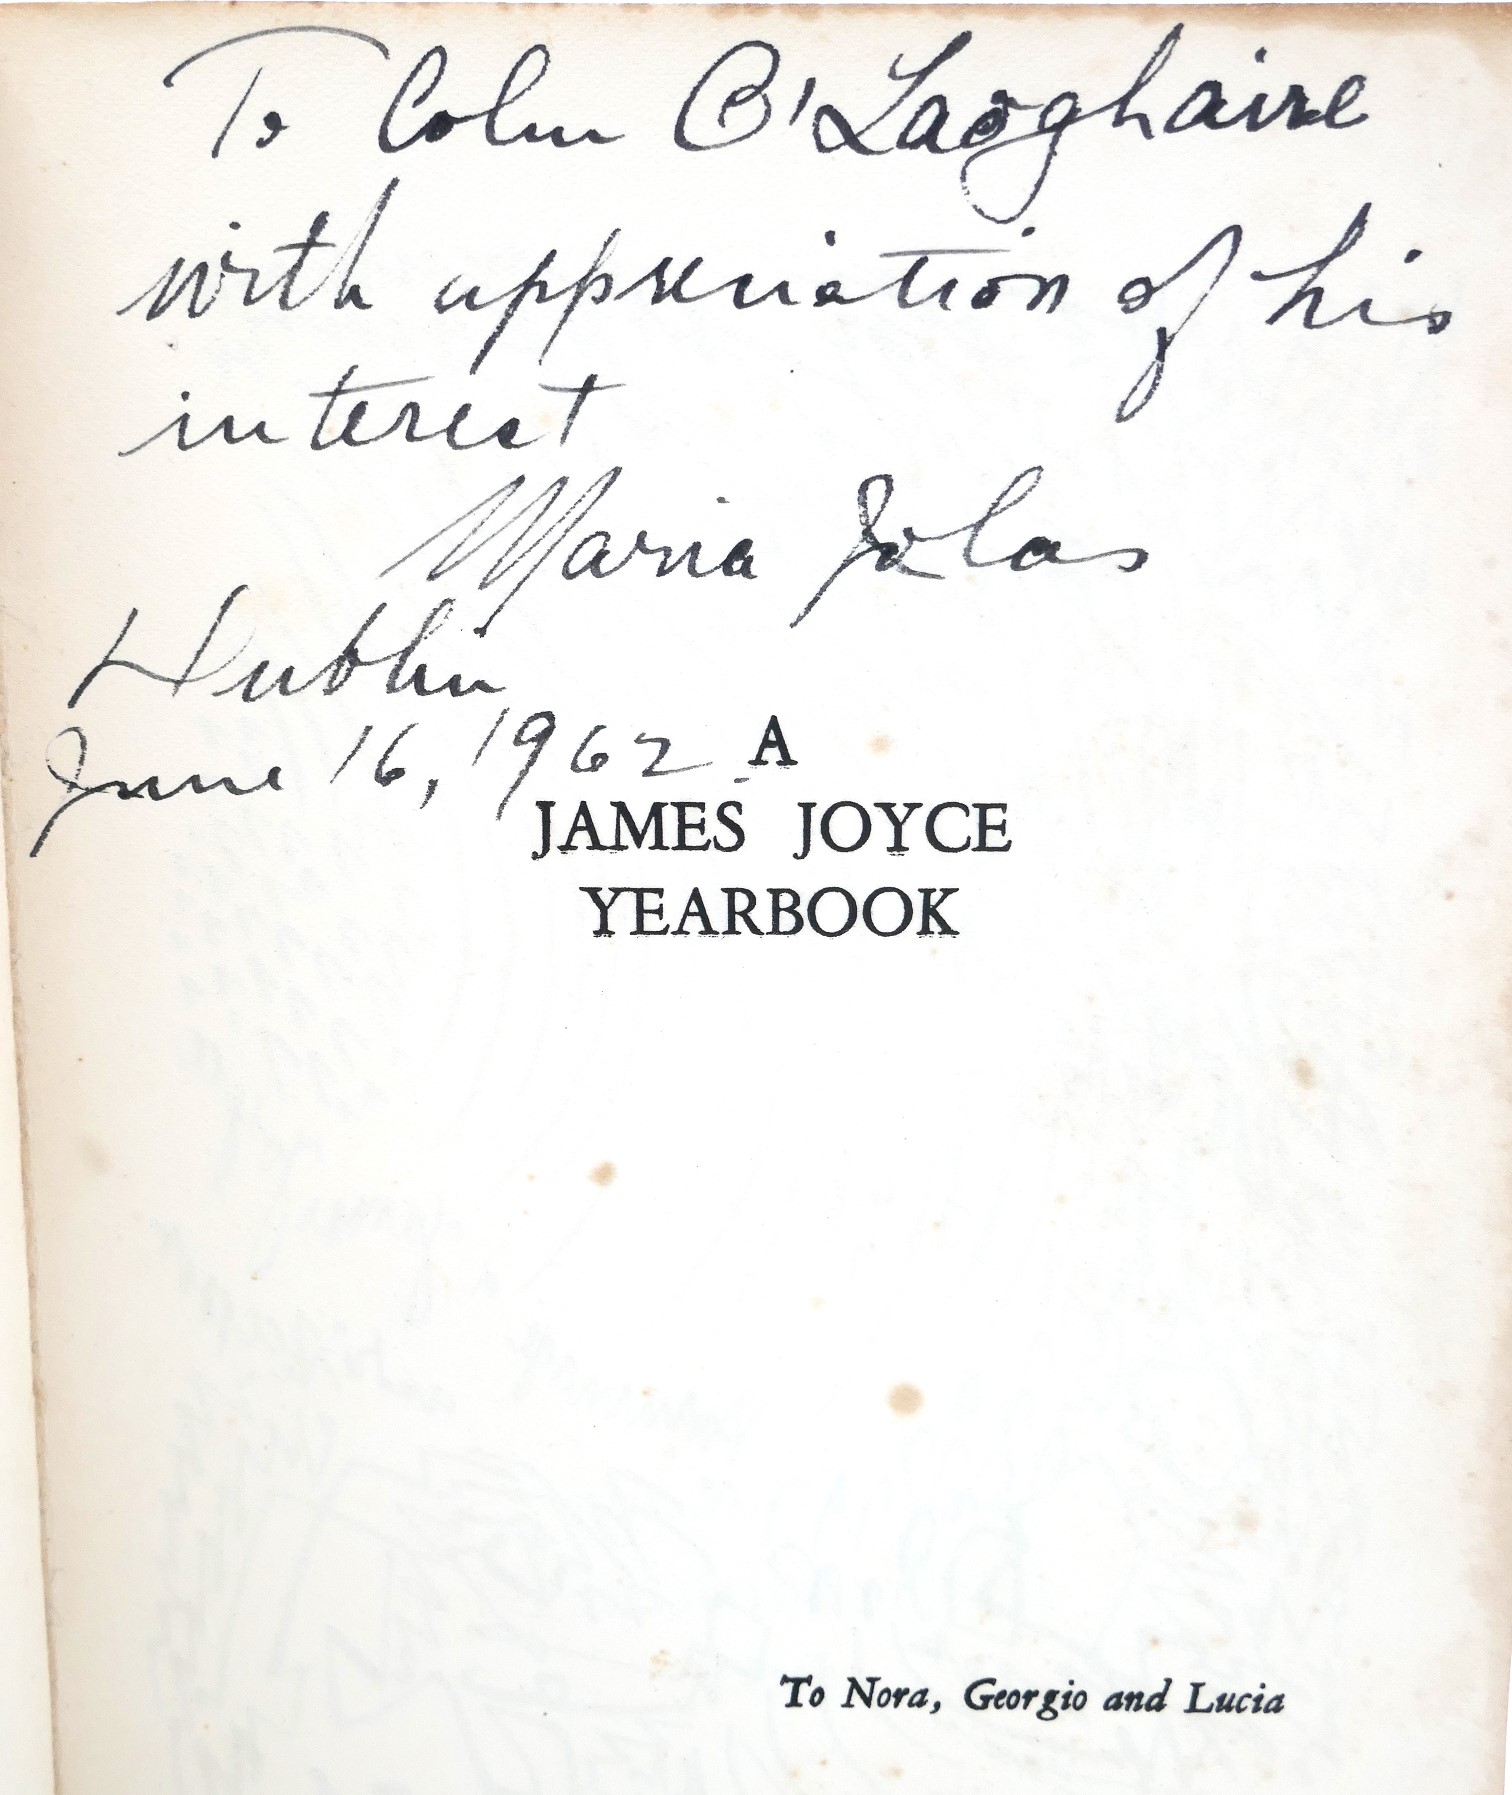 To Colm O'Laoghaire
with appreciation of his
interest
Maria Jolas
Dublin
June 16, 1962
A
JAMES JOYCE
YEARBOOK
To Nora, Georgio and Lucia